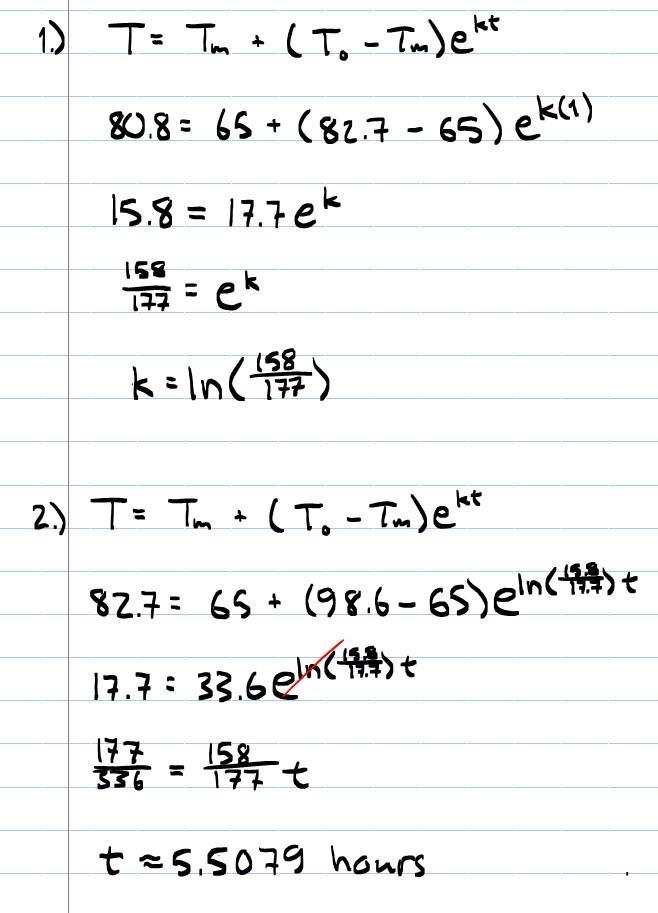 1.) T = Tm + (T₀ - Tm)e^kt
80.8 = 65 + (82.7 - 65) e^k(1)
15.8 = 17.7 e^k
158/177 = e^k
k = ln(158/177)
2.) T = Tm + (T₀ - Tm)e^kt
82.7 = 65 + (98.6 - 65)e^ln(15.8/17.7)t
17.7 = 33.6e^ln(15.8/17.7)t
177/336 = 158/177 t
t ≈ 5.5079 hours